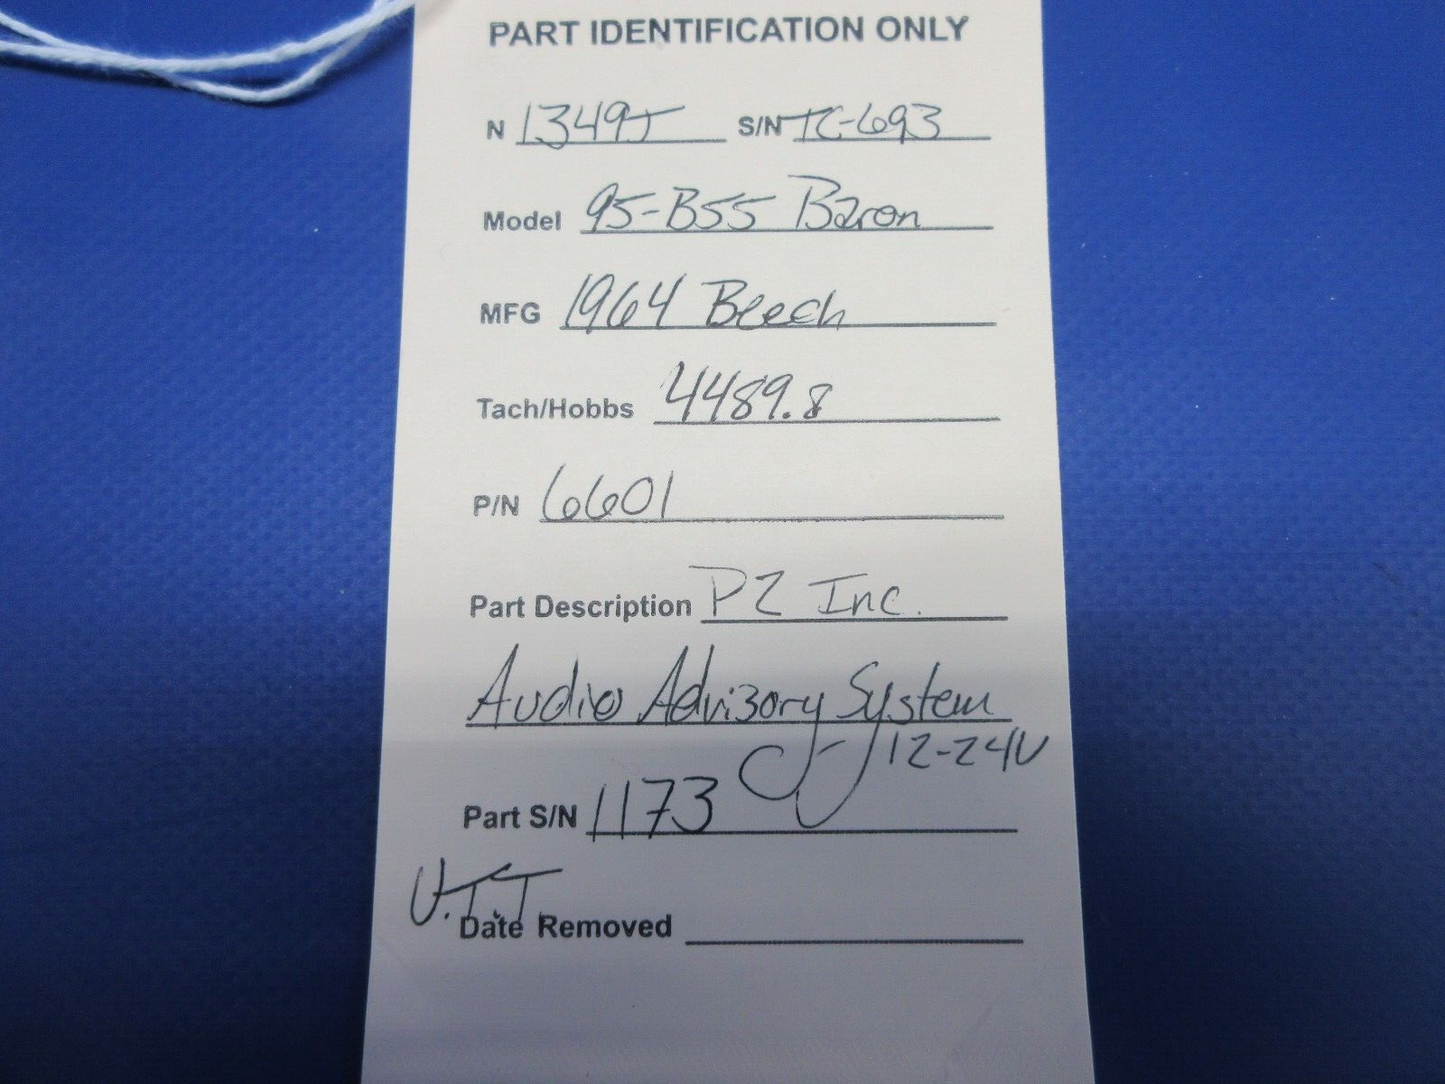 PART IDENTIFICATION ONLY
N 1349T S/N TC-693
Model 95-B55 Baron
MFG 1964 Beech
Tach/Hobbs 4489.8
P/N 6601
Part Description P2 Inc.
Audio Advisory System
12-24V
Part S/N 1173
U.T.T.
Date Removed